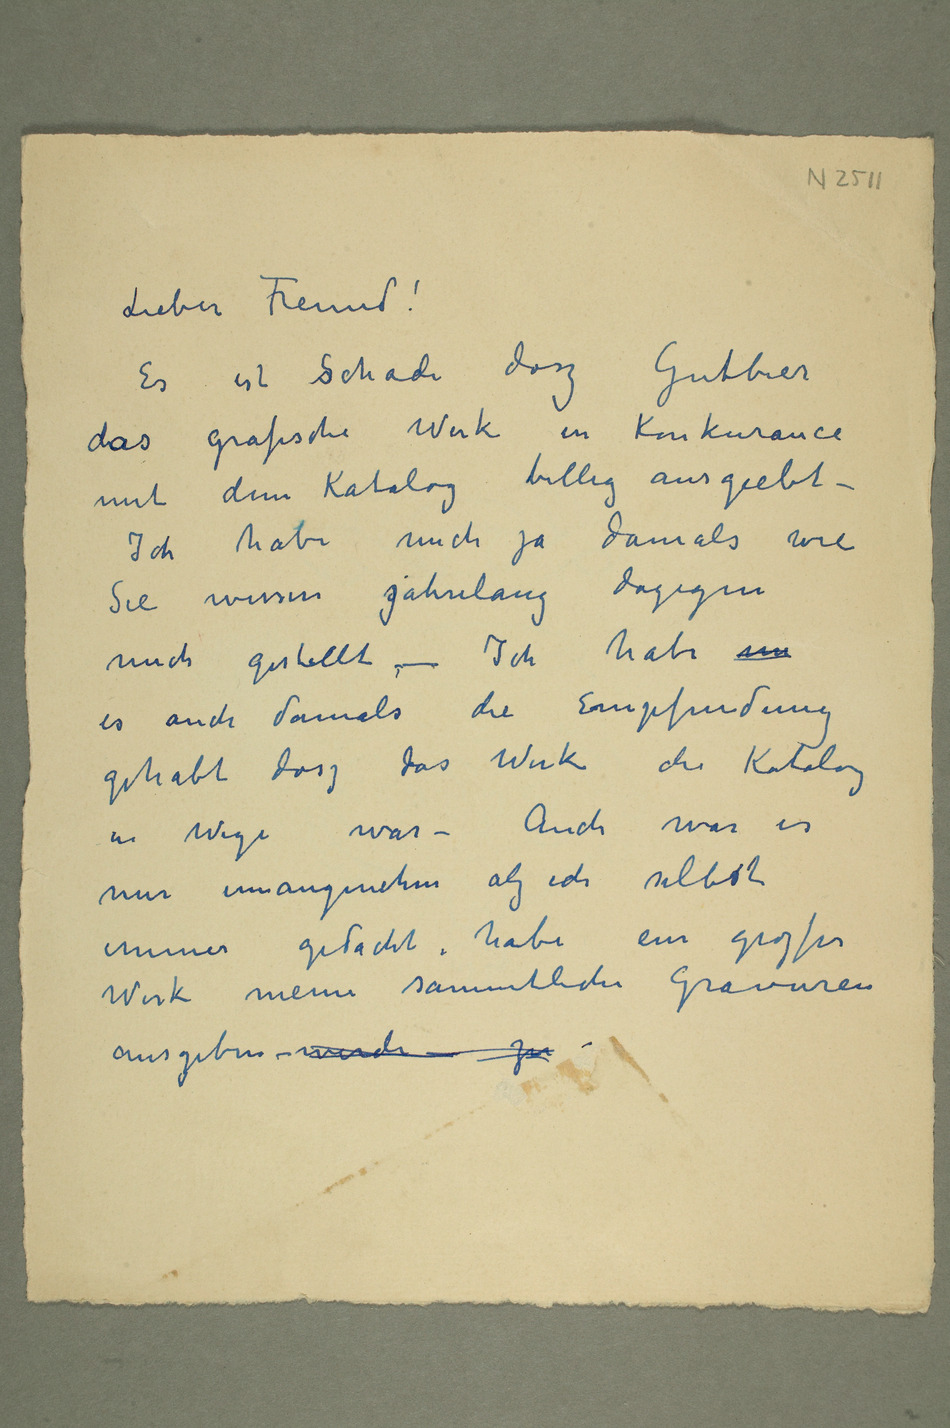 N 2511
Lieber Freund!
Es ist Schade dasz Gutbier
das grafische Werk in Konkurance
mit dem Katalog billig ausgiebt –
Ich habe mich ja damals wie
Sie wissen jahrelang dagegen
mich gestellt, — Ich habe
es auch damals die Empfindung
gehabt dasz das Werk die Katalog
in Wege war – Auch war es
mir unangenehm alz ich selbst
immer gedacht, habe ein groszses
Werk meine sammtliche Gravuren
ausgeben – werde — zu –